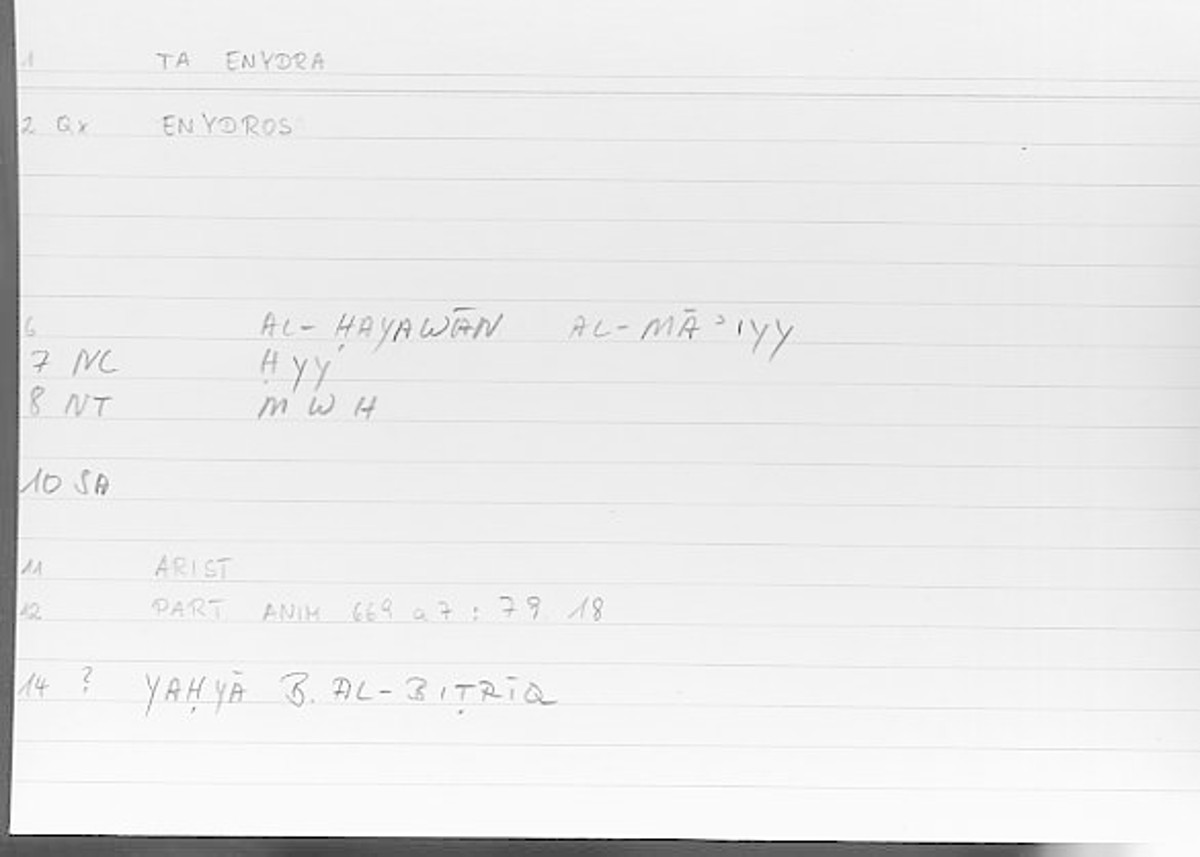 1 TA ENYDRA
2 Qx ENYDROS
6 AL-ḤAYAWĀN AL-MĀʾIYY
7 NC ḤYY
8 NT MWH
10 SA
11 ARIST
12 PART ANIM 669 a 7 : 79 18
14 ? YAḤYĀ B. AL-BIṬRĪQ